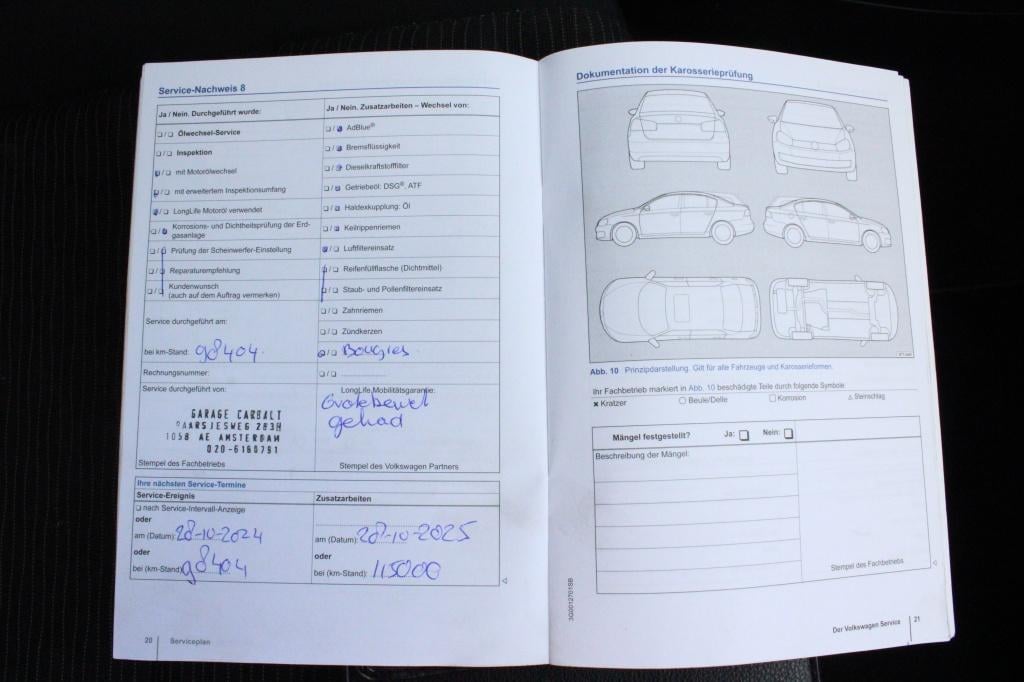 Service-Nachweis 8
Ja / Nein. Durchgeführt wurde:
Ölwechsel-Service
Inspektion
mit Motorölwechsel
mit erweitertem Inspektionsumfang
LongLife Motoröl verwendet
Korrosions- und Dichtheitsprüfung der Erd-
gasanlage
Prüfung der Scheinwerfer-Einstellung
Reparaturempfehlung
Kundenwunsch
(auch auf dem Auftrag vermerken)
Service durchgeführt am:
bei km-Stand: 98404
Rechnungsnummer:
Service durchgeführt von:
GARAGE CARBALT
1058 AE AMSTERDAM
020-6160791
Stempel des Fachbetriebs
Ja / Nein. Zusatzarbeiten – Wechsel von:
AdBlue®
Bremsflüssigkeit
Dieselkraftstofffilter
Getriebeöl: DSG®, ATF
Haldexkupplung: Öl
Keilrippenriemen
Luftfiltereinsatz
Reifenfüllflasche (Dichtmittel)
Staub- und Pollenfiltereinsatz
Zahnriemen
Zündkerzen
Bougies
LongLife Mobilitätsgarantie:
Grotebeurt
gehad
Stempel des Volkswagen Partners
Ihre nächsten Service-Termine
Service-Ereignis
nach Service-Intervall-Anzeige
oder
am (Datum): 28-10-2024
oder
bei (km-Stand): 98404
Zusatzarbeiten
am (Datum): 28-10-2025
oder
bei (km-Stand): 115000
20 Serviceplan
Dokumentation der Karosserieprüfung
Abb. 10 Prinzipdarstellung. Gilt für alle Fahrzeuge und Karosserieformen.
Ihr Fachbetrieb markiert in Abb. 10 beschädigte Teile durch folgende Symbole:
Kratzer Beule/Delle Korrosion Steinschlag
Mängel festgestellt? Ja: Nein:
Beschreibung der Mängel:
Stempel des Fachbetriebs
3G0012701SB
Der Volkswagen Service 21